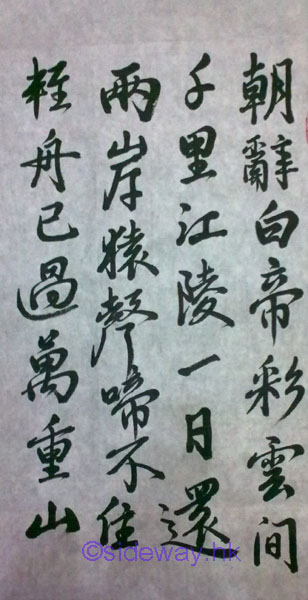 朝辭白帝彩雲间
千里江陵一日還
兩岸猿聲啼不住
輕舟已過萬重山
©sideway.hk